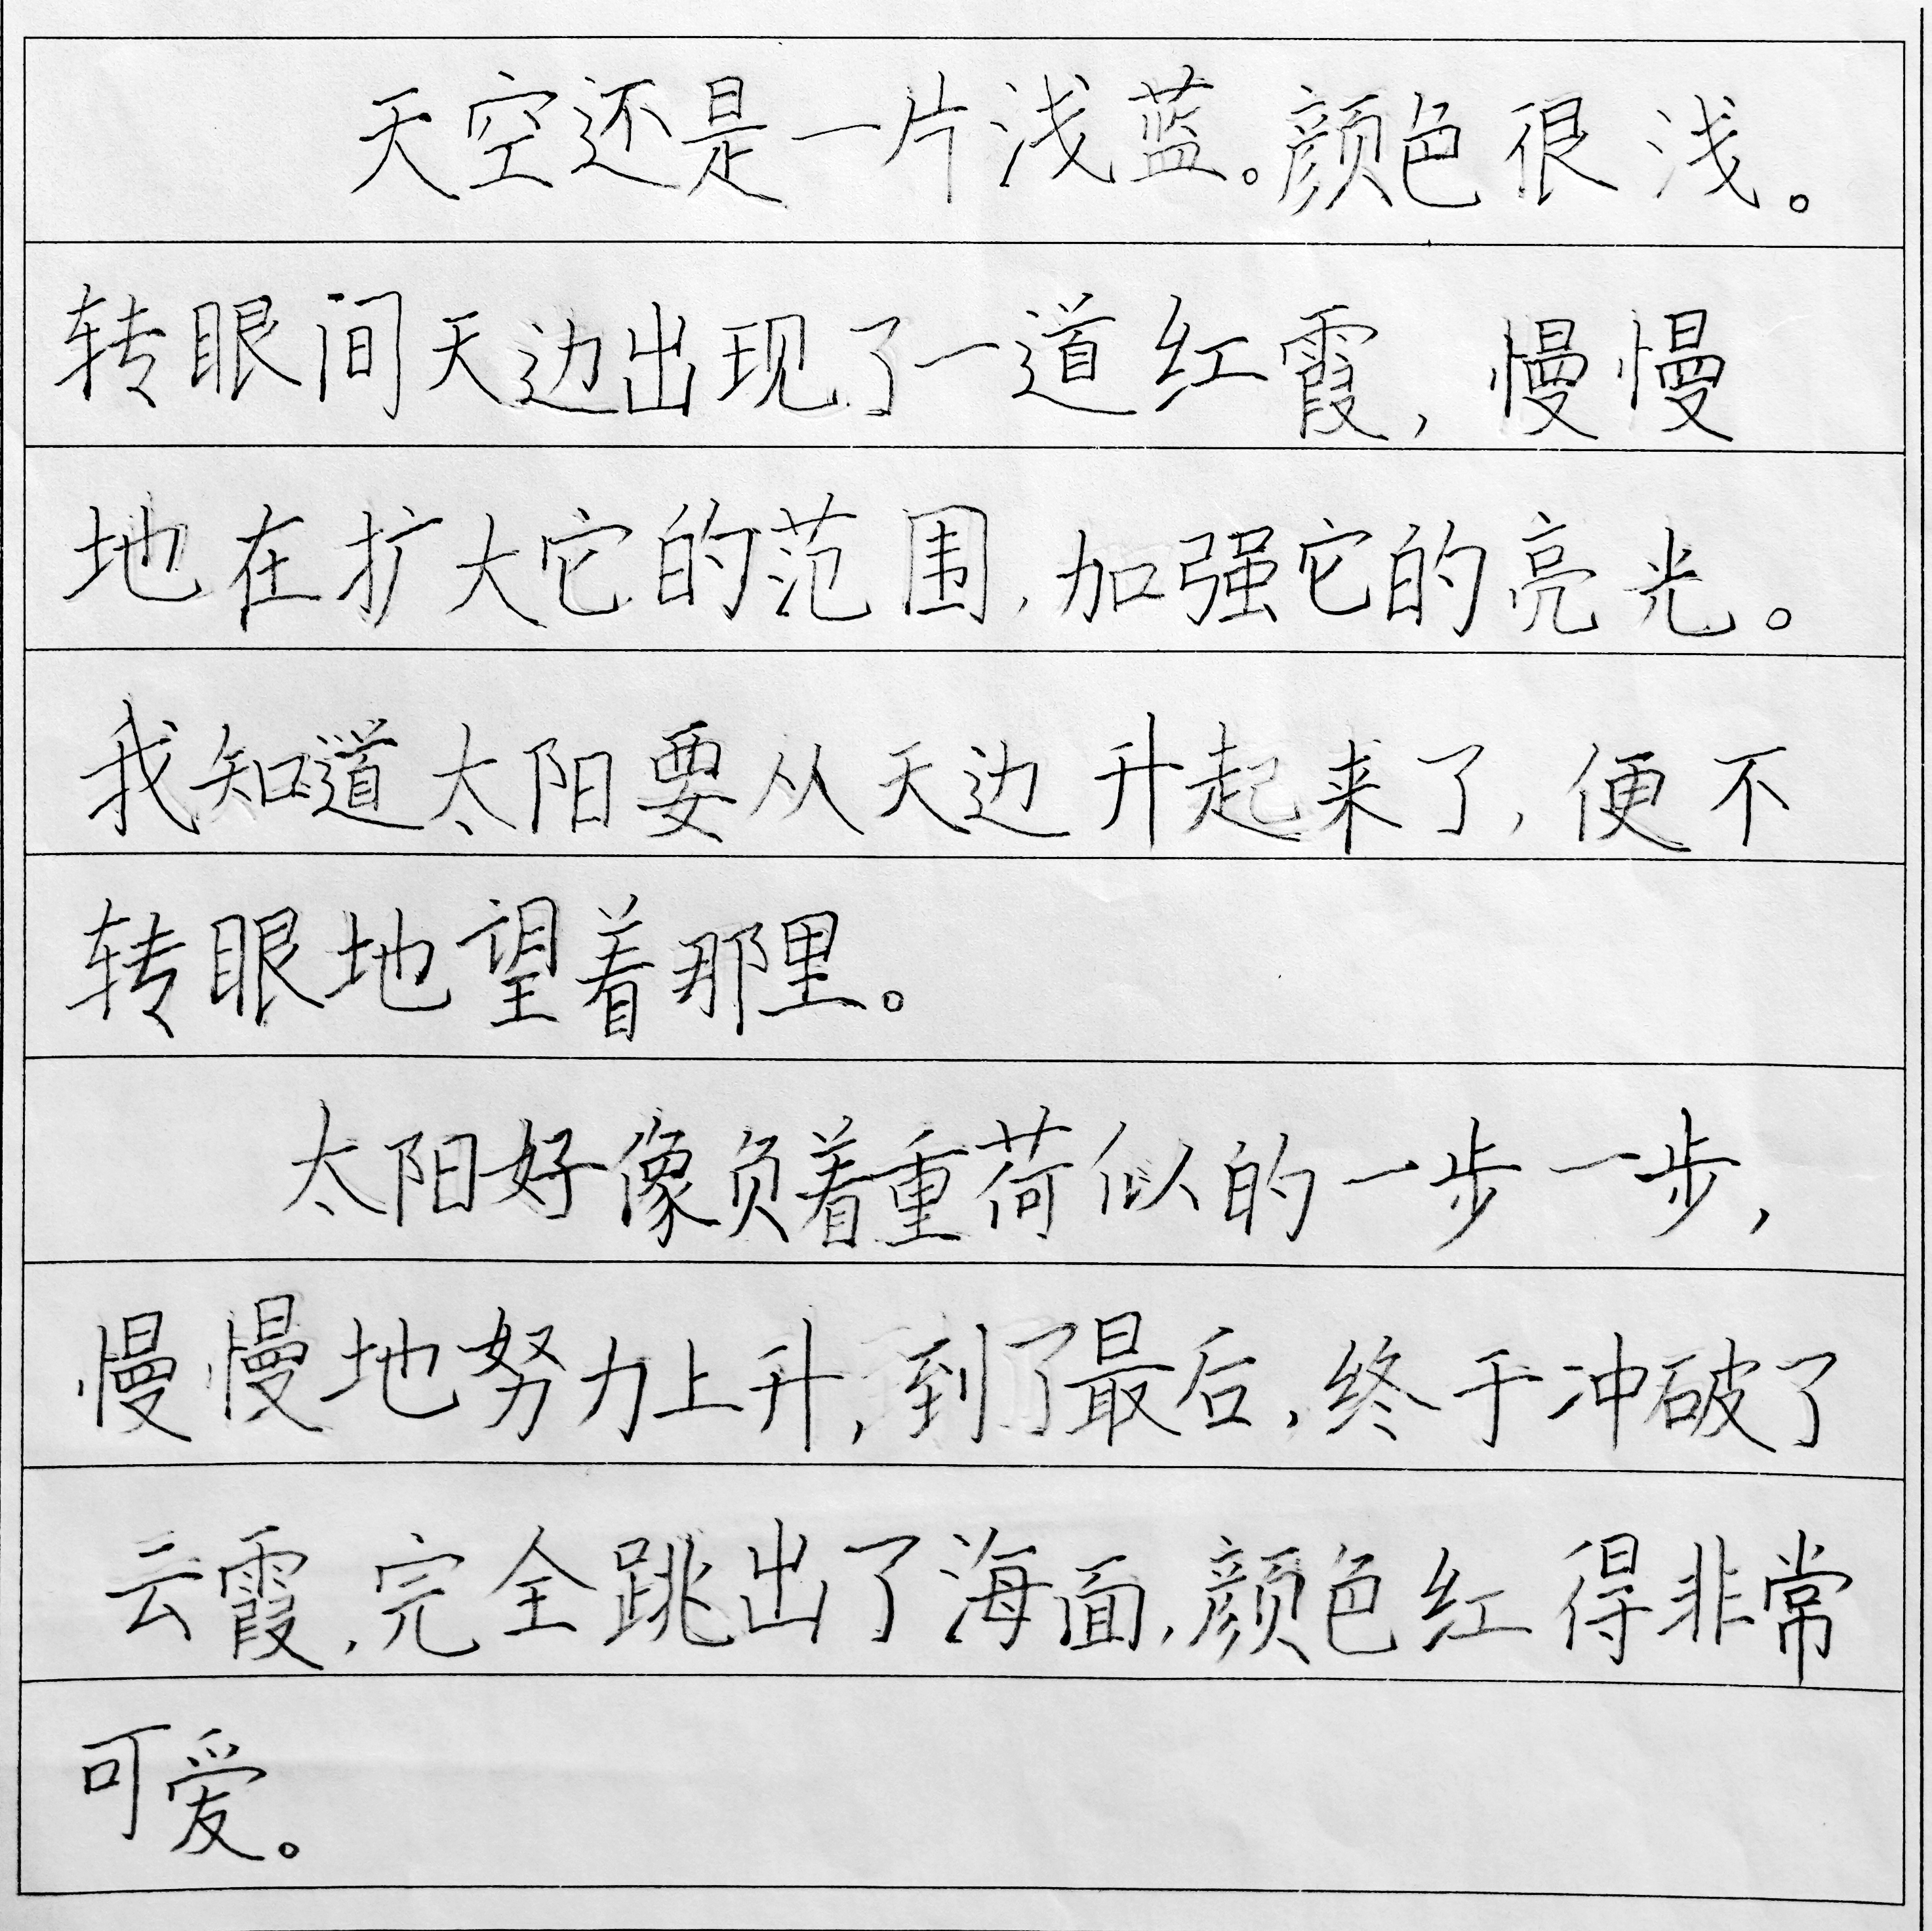 天空还是一片浅蓝。颜色很浅。
转眼间天边出现了一道红霞，慢慢
地在扩大它的范围，加强它的亮光。
我知道太阳要从天边升起来了，便不
转眼地望着那里。
太阳好像负着重荷似的一步一步，
慢慢地努力上升，到了最后，终于冲破了
云霞，完全跳出了海面，颜色红得非常
可爱。